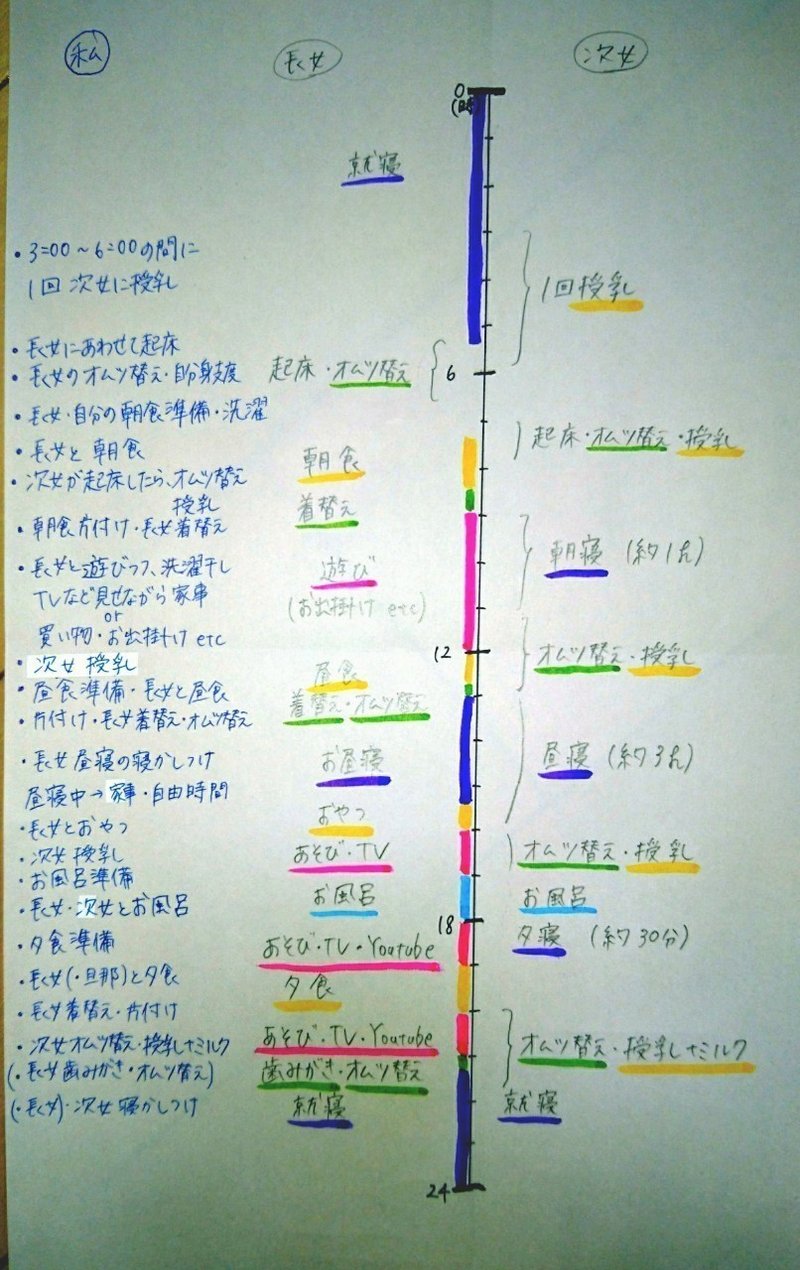 私
長女
次女
0
(時)
就寝
・3:00～6:00の間に
1回 次女に授乳
1回授乳
・長女にあわせて起床
・長女のオムツ替え・自分身支度
起床・オムツ替え
6
・長女・自分の朝食準備・洗濯
起床・オムツ替え・授乳
・長女と朝食
朝食
・次女が起床したら、オムツ替え
授乳
着替え
・朝食片付け・長女着替え
朝寝(約1h)
・長女と遊びつつ、洗濯干し
遊び
TVなど見せながら家事
(お出掛け etc)
or
買い物・お出掛け etc
12
オムツ替え・授乳
・次女 授乳
昼食
・昼食準備・長女と昼食
着替え・オムツ替え
・片付け・長女着替え・オムツ替え
・長女昼寝の寝かしつけ
お昼寝
昼寝(約3h)
昼寝中→家事・自由時間
おやつ
・長女とおやつ
・次女授乳
あそび・TV
オムツ替え・授乳
・お風呂準備
・長女・次女とお風呂
お風呂
お風呂
18
・夕食準備
あそび・TV・Youtube
夕寝(約30分)
・長女(・旦那)と夕食
夕食
・長女着替え・片付け
・次女オムツ替え・授乳+ミルク
あそび・TV・Youtube
オムツ替え・授乳+ミルク
(・長女歯みがき・オムツ替え)
歯みがき・オムツ替え
(・長女)・次女寝かしつけ
就寝
就寝
24